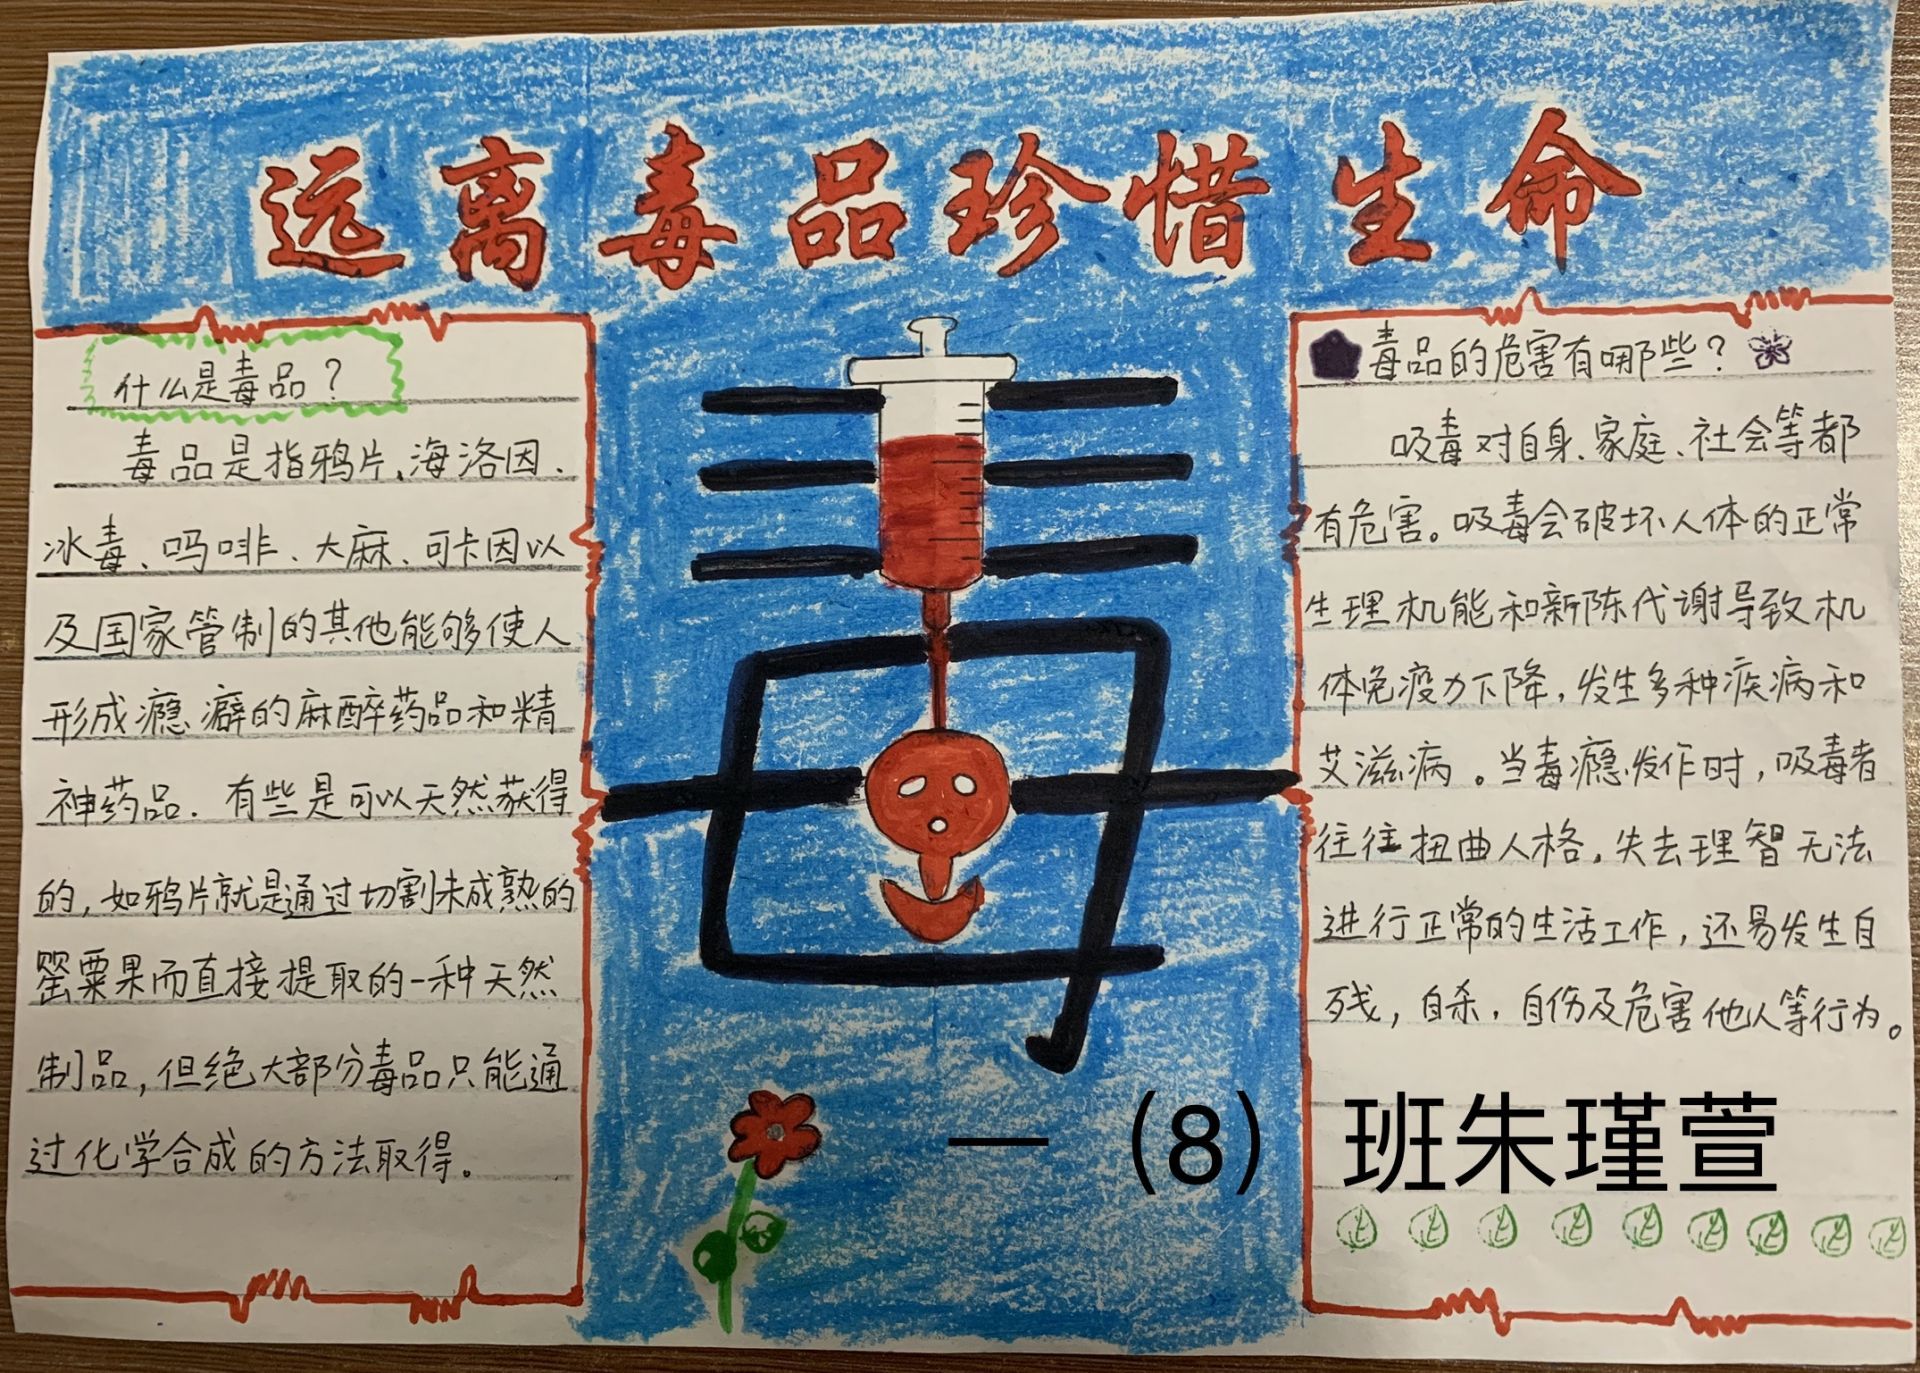 远离毒品珍惜生命
什么是毒品?
毒品是指鸦片、海洛因、
冰毒、吗啡、大麻、可卡因以
及国家管制的其他能够使人
形成瘾癖的麻醉药品和精
神药品.有些是可以天然获得
的,如鸦片就是通过切割未成熟的
罂粟果而直接提取的一种天然
制品,但绝大部分毒品只能通
过化学合成的方法取得。
毒品的危害有哪些?
吸毒对自身、家庭、社会等都
有危害。吸毒会破坏人体的正常
生理机能和新陈代谢导致机
体免疫力下降,发生多种疾病和
艾滋病。当毒瘾发作时,吸毒者
往往扭曲人格,失去理智无法
进行正常的生活工作,还易发生自
残,自杀,自伤及危害他人等行为。
一(8) 班朱瑾萱